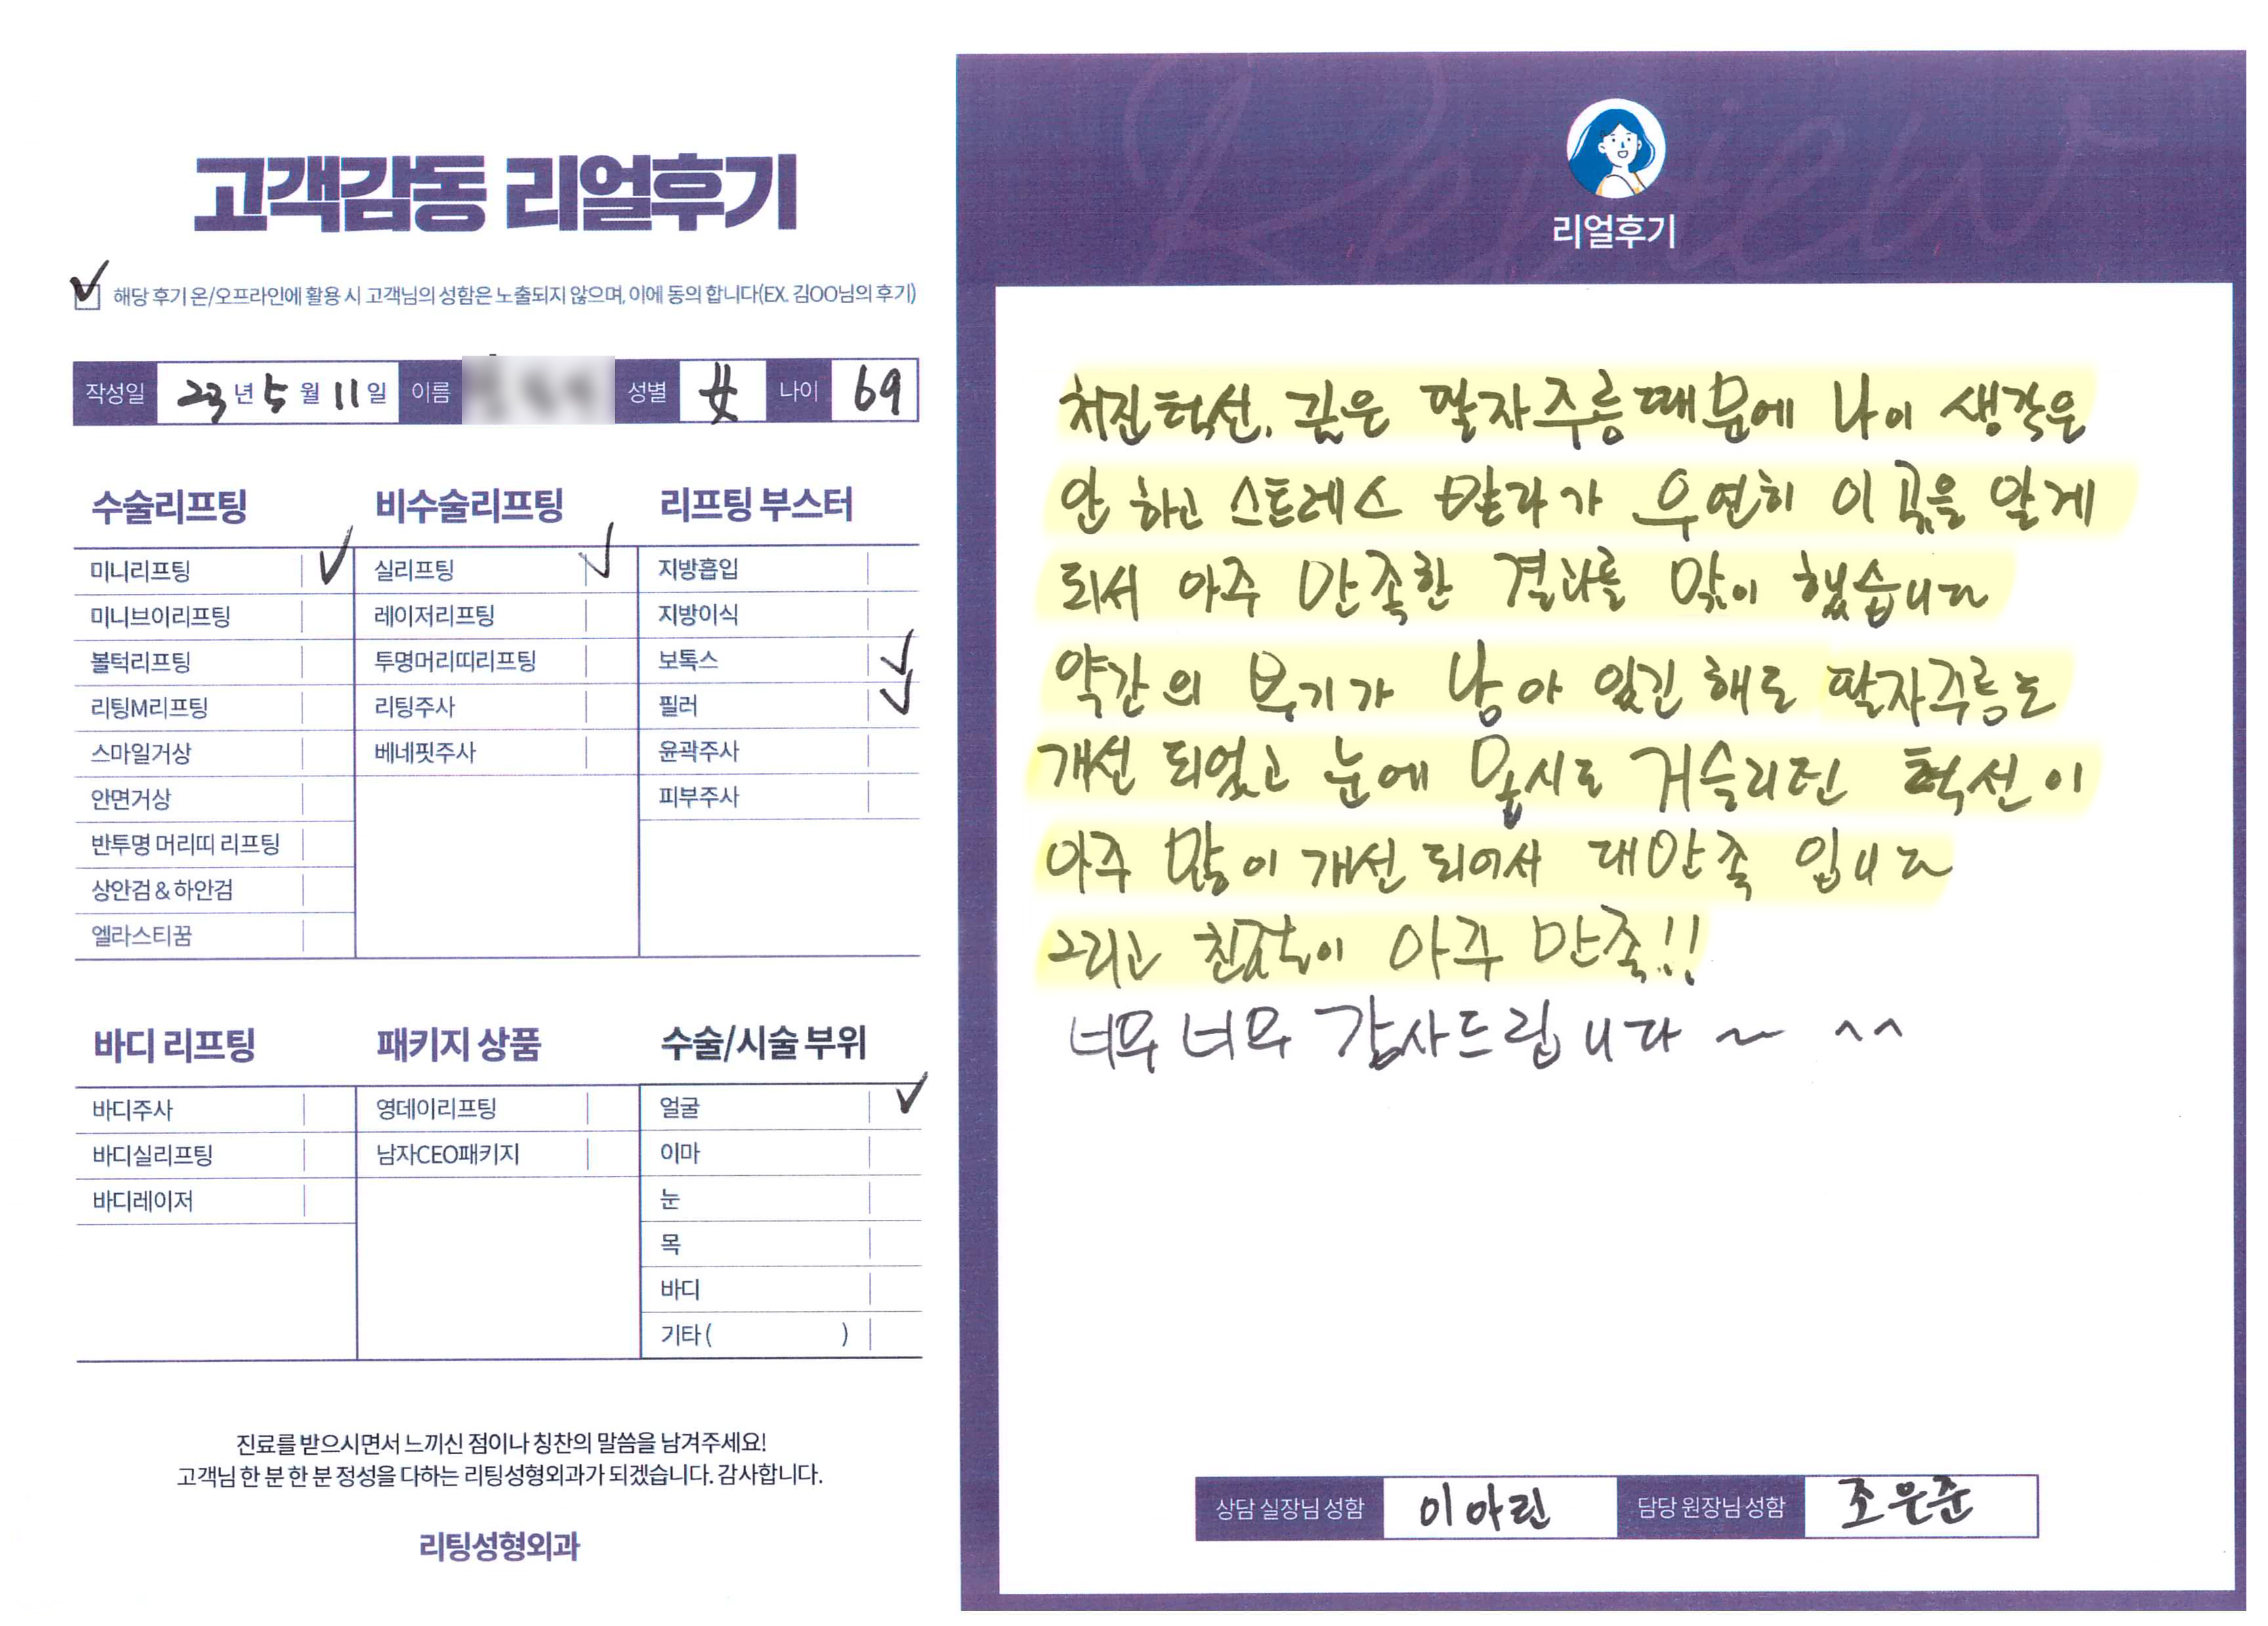 고객감동 리얼후기
해당 후기 온/오프라인에 활용 시 고객님의 성함은 노출되지 않으며, 이에 동의 합니다(EX. 김OO님의 후기)
작성일 23년 5월 11일 이름 성별 女 나이 69
수술리프팅
미니리프팅
미니브이리프팅
볼턱리프팅
리팅M리프팅
스마일거상
안면거상
반투명 머리띠 리프팅
상안검 & 하안검
엘라스티꿈
비수술리프팅
실리프팅
레이저리프팅
투명머리띠리프팅
리팅주사
베네핏주사
리프팅 부스터
지방흡입
지방이식
보톡스
필러
윤곽주사
피부주사
바디 리프팅
바디주사
바디실리프팅
바디레이저
패키지 상품
영데이리프팅
남자CEO패키지
수술/시술 부위
얼굴
이마
눈
목
바디
기타 ( )
진료를 받으시면서 느끼신 점이나 칭찬의 말씀을 남겨주세요!
고객님 한 분 한 분 정성을 다하는 리팅성형외과가 되겠습니다. 감사합니다.
리팅성형외과
Review
리얼후기
처진턱선, 깊은 팔자주름때문에 나이 생각은
안 하고 스트레스 받다가 우연히 이 곳을 알게
되서 아주 만족한 결과를 맞이 했습니다
약간의 붓기가 남아 있긴 해도 팔자주름도
개선 되었고 눈에 몹시도 거슬리던 턱선이
아주 많이 개선 되어서 대만족 입니다
그리고 친절이 아주 만족!!
너무 너무 감사드립니다 ~ ^^
상담 실장님 성함 이아린 담당 원장님 성함 조은준